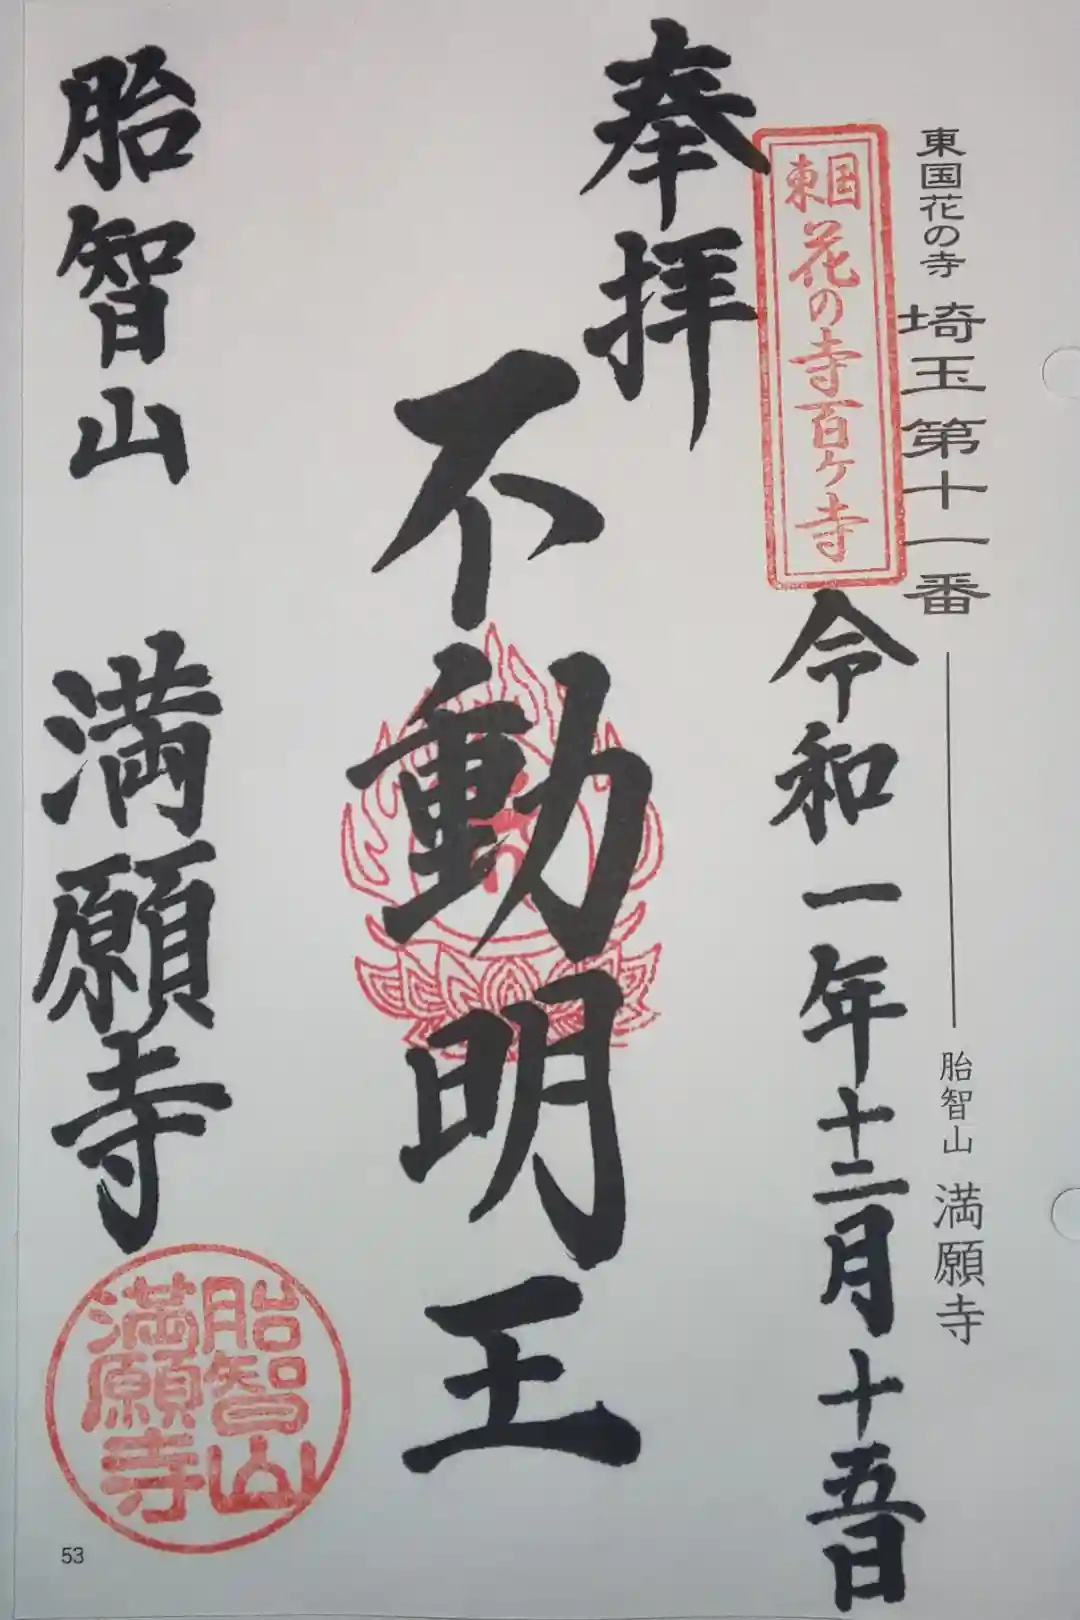 東国花の寺 埼玉第十一番
胎智山 満願寺
東国花の寺百ヶ寺
奉拝
令和一年十二月十五日
不動明王
胎智山 満願寺
胎智山
満願寺
53